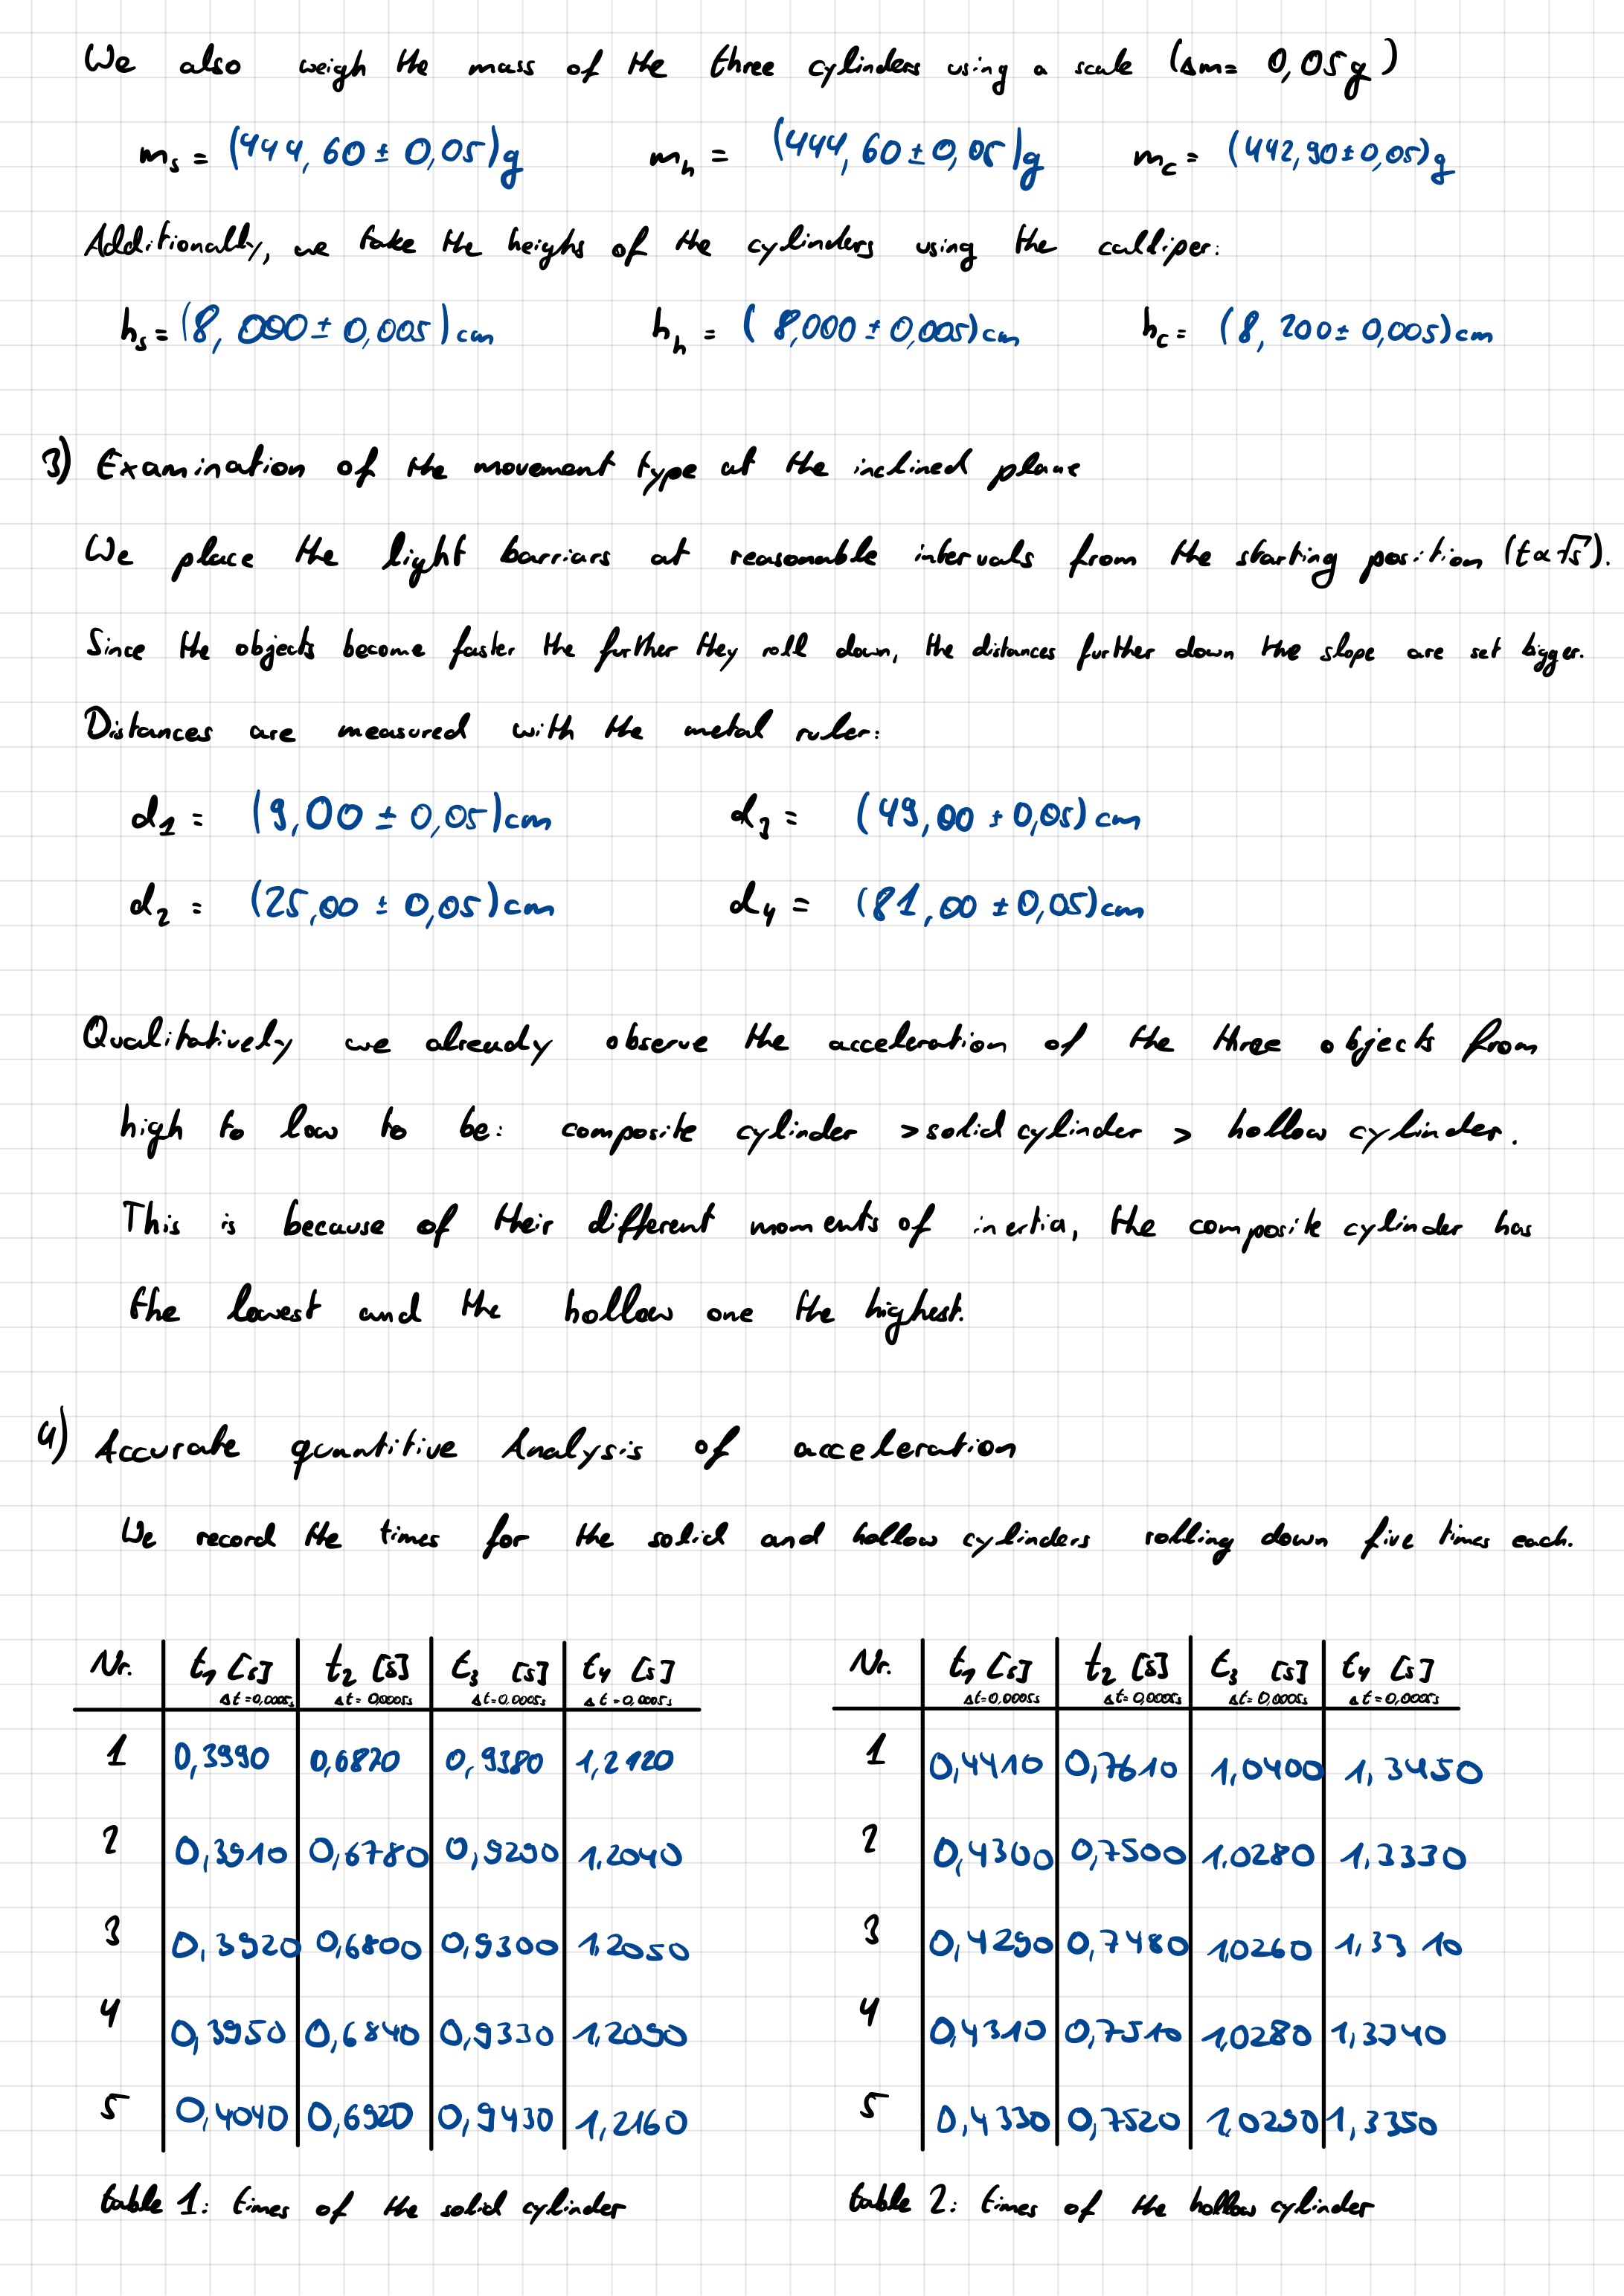 We also weigh the mass of the three cylinders using a scale (Δm= 0,05g)
m_s = (444,60 ± 0,05)g m_h = (444,60 ± 0,05)g m_c = (442,90 ± 0,05)g
Additionally, we take the heighs of the cylinders using the calliper:
h_s = (8,000 ± 0,005)cm h_h = (8,000 ± 0,005)cm h_c = (8,200 ± 0,005)cm
3) Examination of the movement type at the inclined plane
We place the light barriars at reasonable intervals from the starting position (t∝√s).
Since the objects become faster the further they roll down, the distances further down the slope are set bigger.
Distances are measured with the metal ruler:
d_1 = (9,00 ± 0,05)cm d_3 = (49,00 ± 0,05)cm
d_2 = (25,00 ± 0,05)cm d_4 = (81,00 ± 0,05)cm
Qualitatively we already observe the acceleration of the three objects from
high to low to be: composite cylinder > solid cylinder > hollow cylinder.
This is because of their different moments of inertia, the composite cylinder has
the lowest and the hollow one the highest.
4) Accurate quantitive Analysis of acceleration
We record the times for the solid and hollow cylinders rolling down five times each.
Nr. t_1 [s] t_2 [s] t_3 [s] t_4 [s]
Δt=0,0005s Δt=0,0005s Δt=0,0005s Δt=0,0005s
1 0,3990 0,6870 0,9380 1,2120
2 0,3910 0,6780 0,9290 1,2040
3 0,3920 0,6800 0,9300 1,2050
4 0,3950 0,6840 0,9330 1,2090
5 0,4040 0,6920 0,9430 1,2160
table 1: times of the solid cylinder
Nr. t_1 [s] t_2 [s] t_3 [s] t_4 [s]
Δt=0,0005s Δt=0,0005s Δt=0,0005s Δt=0,0005s
1 0,4410 0,7610 1,0400 1,3450
2 0,4300 0,7500 1,0280 1,3330
3 0,4290 0,7480 1,0260 1,3310
4 0,4310 0,7510 1,0280 1,3340
5 0,4330 0,7520 1,0290 1,3350
table 2: times of the hollow cylinder